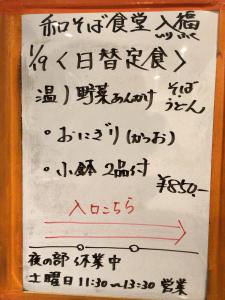 和そば食堂 入福
いりふく
1/19 〈日替定食〉
温)野菜あんかけ そば
うどん
・おにぎり(かつお)
・小鉢 2品付
¥850.-
入口こちら
夜の部 休業中
土曜日 11:30〜13:30 営業